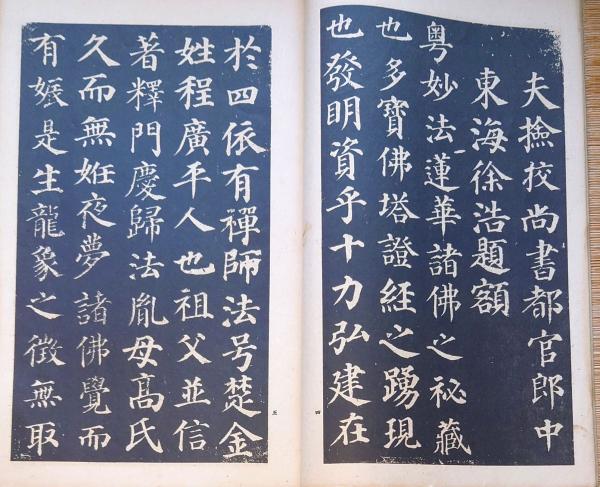 夫撿挍尚書都官郎中
東海徐浩題額
粵妙法蓮華諸佛之祕藏
也多寶佛塔證經之踴現
也發明資乎十力弘建在
四
於四依有禪師法号楚金
姓程廣平人也祖父並信
著釋門慶歸法胤母高氏
久而無姙夜夢諸佛覺而
有娠是生龍象之徵無取
五